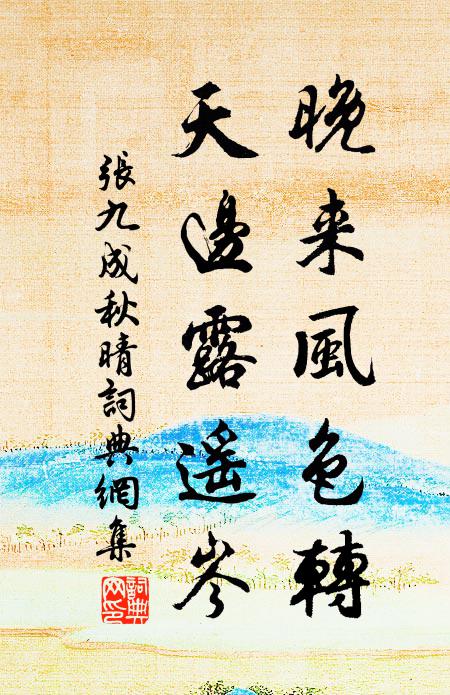 晚来風色轉
天邊露遥岑
張九成秋晴詞典網集
詞典網印